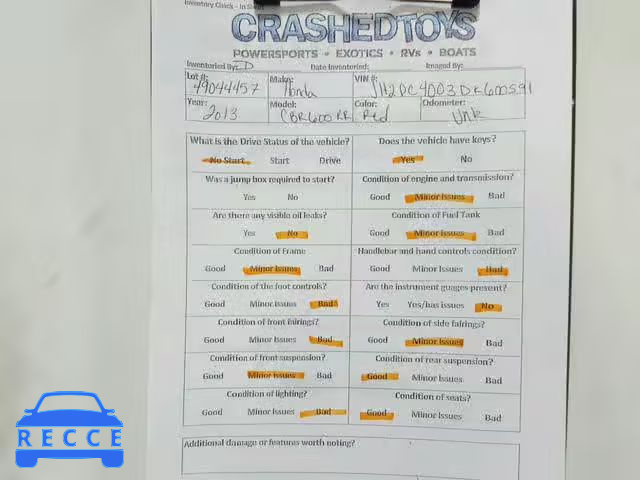 Inventory Check - In
CRASHEDTOYS
POWERSPORTS • EXOTICS • RVs • BOATS
Inventoried By: ED Date Inventoried: Imaged By:
Lot #: 49044457 Make: Honda VIN #: JH2DC4003DK600591
Year: 2013 Model: CBR600RR Color: Red Odometer: Unk
What is the Drive Status of the vehicle? Does the vehicle have keys?
No Start Start Drive Yes No
Was a jump box required to start? Condition of engine and transmission?
Yes No Good Minor Issues Bad
Are there any visible oil leaks? Condition of Fuel Tank
Yes No Good Minor Issues Bad
Condition of Frame Handlebar and hand controls condition?
Good Minor Issues Bad Good Minor Issues Bad
Condition of the foot controls? Are the instrument guages present?
Good Minor Issues Bad Yes Yes/has issues No
Condition of front fairings? Condition of side fairings?
Good Minor Issues Bad Good Minor Issues Bad
Condition of front suspension? Condition of rear suspension?
Good Minor Issues Bad Good Minor Issues Bad
Condition of lighting? Condition of seats?
Good Minor Issues Bad Good Minor Issues Bad
Additional damage or features worth noting?
RECCE